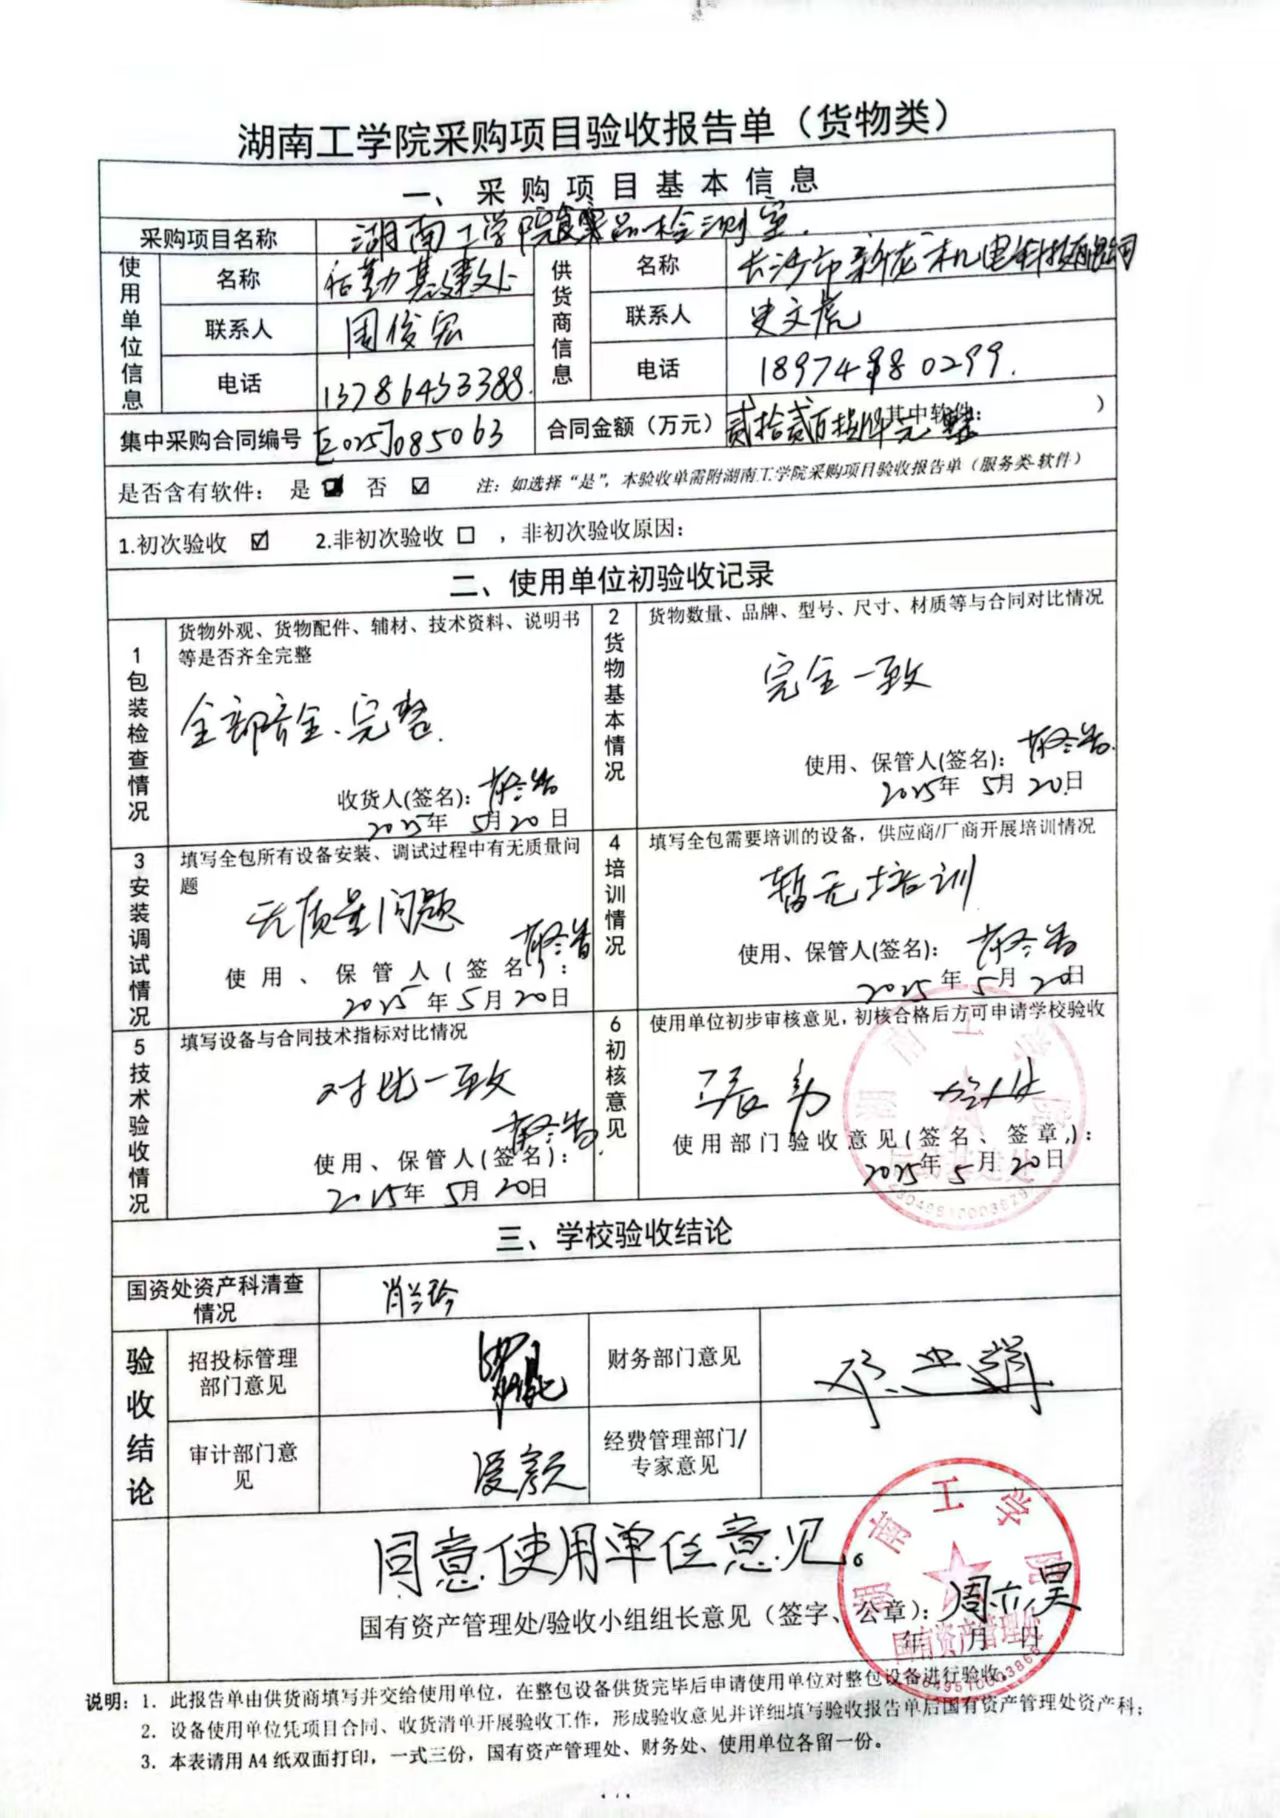 湖南工学院采购项目验收报告单（货物类）
一、采购项目基本信息
采购项目名称 湖南工学院食品检测室.
使用单位信息 名称 后勤基建处
供货商信息 名称 长沙市新龙机电科技有限公司
联系人 周俊宏
联系人 史文虎
电话 13786453388.
电话 18974980299.
集中采购合同编号 [2025]085063
合同金额（万元） 贰拾贰万 其中软件： ）
是否含有软件： 是 否 ☑ 注：如选择“是”，本验收单需附湖南工学院采购项目验收报告单（服务类-软件）
1.初次验收 ☑ 2.非初次验收 □ ，非初次验收原因：
二、使用单位初验收记录
1 包装检查情况
货物外观、货物配件、辅材、技术资料、说明书
等是否齐全完整
全部齐全、完整.
收货人(签名)：
2025年 5月20日
2 货物基本情况
货物数量、品牌、型号、尺寸、材质等与合同对比情况
完全一致
使用、保管人(签名)：
2025年 5月20日
3 安装调试情况
填写全包所有设备安装、调试过程中有无质量问
题
无质量问题
使用、保管人(签名)：
2025年5月20日
4 培训情况
填写全包需要培训的设备，供应商/厂商开展培训情况
暂无培训
使用、保管人(签名)：
2025年5月20日
5 技术验收情况
填写设备与合同技术指标对比情况
对比一致
使用、保管人(签名)：
2025年5月20日
6 初核意见
使用单位初步审核意见，初核合格后方可申请学校验收
使用部门验收意见(签名、签章,)：
2025年5月20日
湖南工学院
后勤基建处
三、学校验收结论
国资处资产科清查
情况
肖兰玲
验收结论
招投标管理
部门意见
财务部门意见
审计部门意
见
经费管理部门/
专家意见
同意使用单位意见。
国有资产管理处/验收小组组长意见（签字、公章）：
年 月 日
湖南工学院
国有资产管理处
说明：1. 此报告单由供货商填写并交给使用单位，在整包设备供货完毕后申请使用单位对整包设备进行验收。
2. 设备使用单位凭项目合同、收货清单开展验收工作，形成验收意见并详细填写验收报告单后国有资产管理处资产科；
3. 本表请用A4纸双面打印，一式三份，国有资产管理处、财务处、使用单位各留一份。